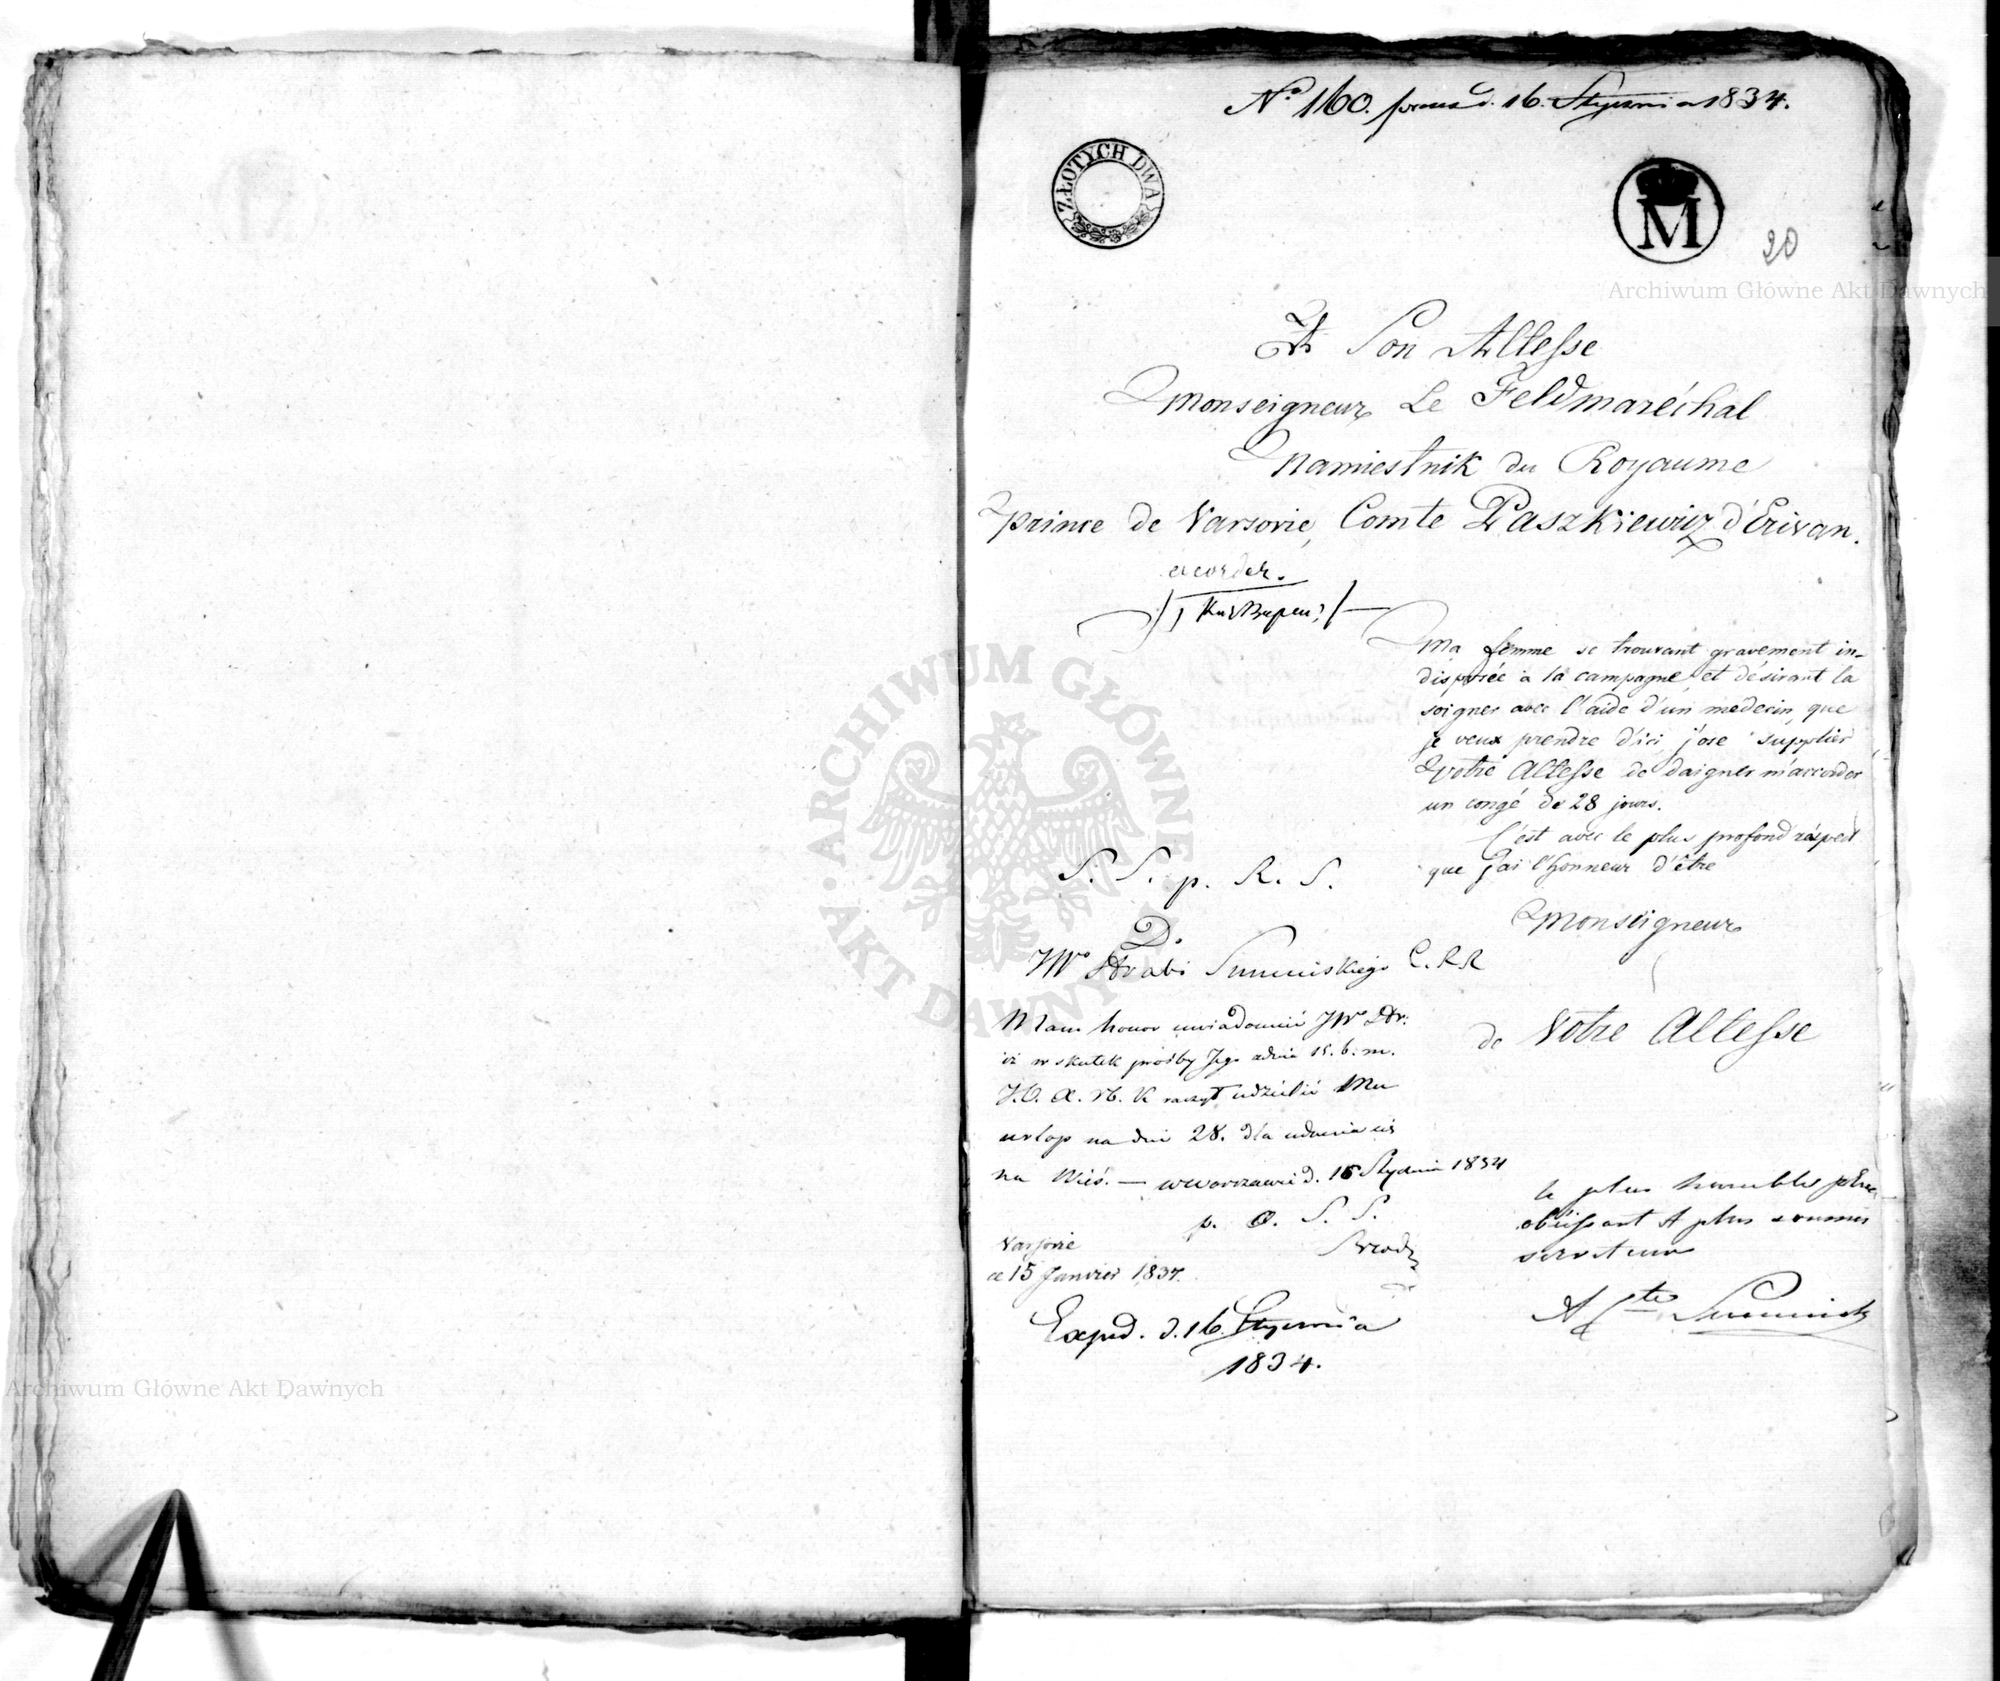 No 160. praes d. 16. Stycznia 1834.
ZŁOTYCH DWA
M
20
Archiwum Główne Akt Dawnych
A Son Altesse
Monseigneur Le Feldmaréchal
Namiestnik du Royaume
Prince de Varsovie, Comte Paszkiewicz d'Erivan.
accorder.
Ma femme se trouvant gravement in-
disposée à la campagne, et désirant la
soigner avec l'aide d'un medecin, que
je veux prendre d'ici, j'ose supplier
Votre Altesse de daigner m'accorder
un congé de 28 jours.
C'est avec le plus profond réspect
que j'ai l'honneur d'être
Monseigneur
de Votre Altesse
le plus humble, plus
obéissant et plus soumis
serviteur
A Cte Suminski
S. S. p. R. S.
D.
JWo Hrabi Sumińskiego C. R. R
Mam honor uwiadomić JW Hr:
iż w skutek prośby Jego z dnia 15. b. m.
J. O. X. N. K raczył udzielić Mu
urlop na dni 28. dla udania się
na Wieś. — w Warszawie d. 16 Stycznia 1834
p. o. S. S.
Varsovie
ce 15 Janvier 1834.
Exped. d. 16. Stycznia
1834.
ARCHIWUM GŁÓWNE AKT DAWNYCH
Archiwum Główne Akt Dawnych